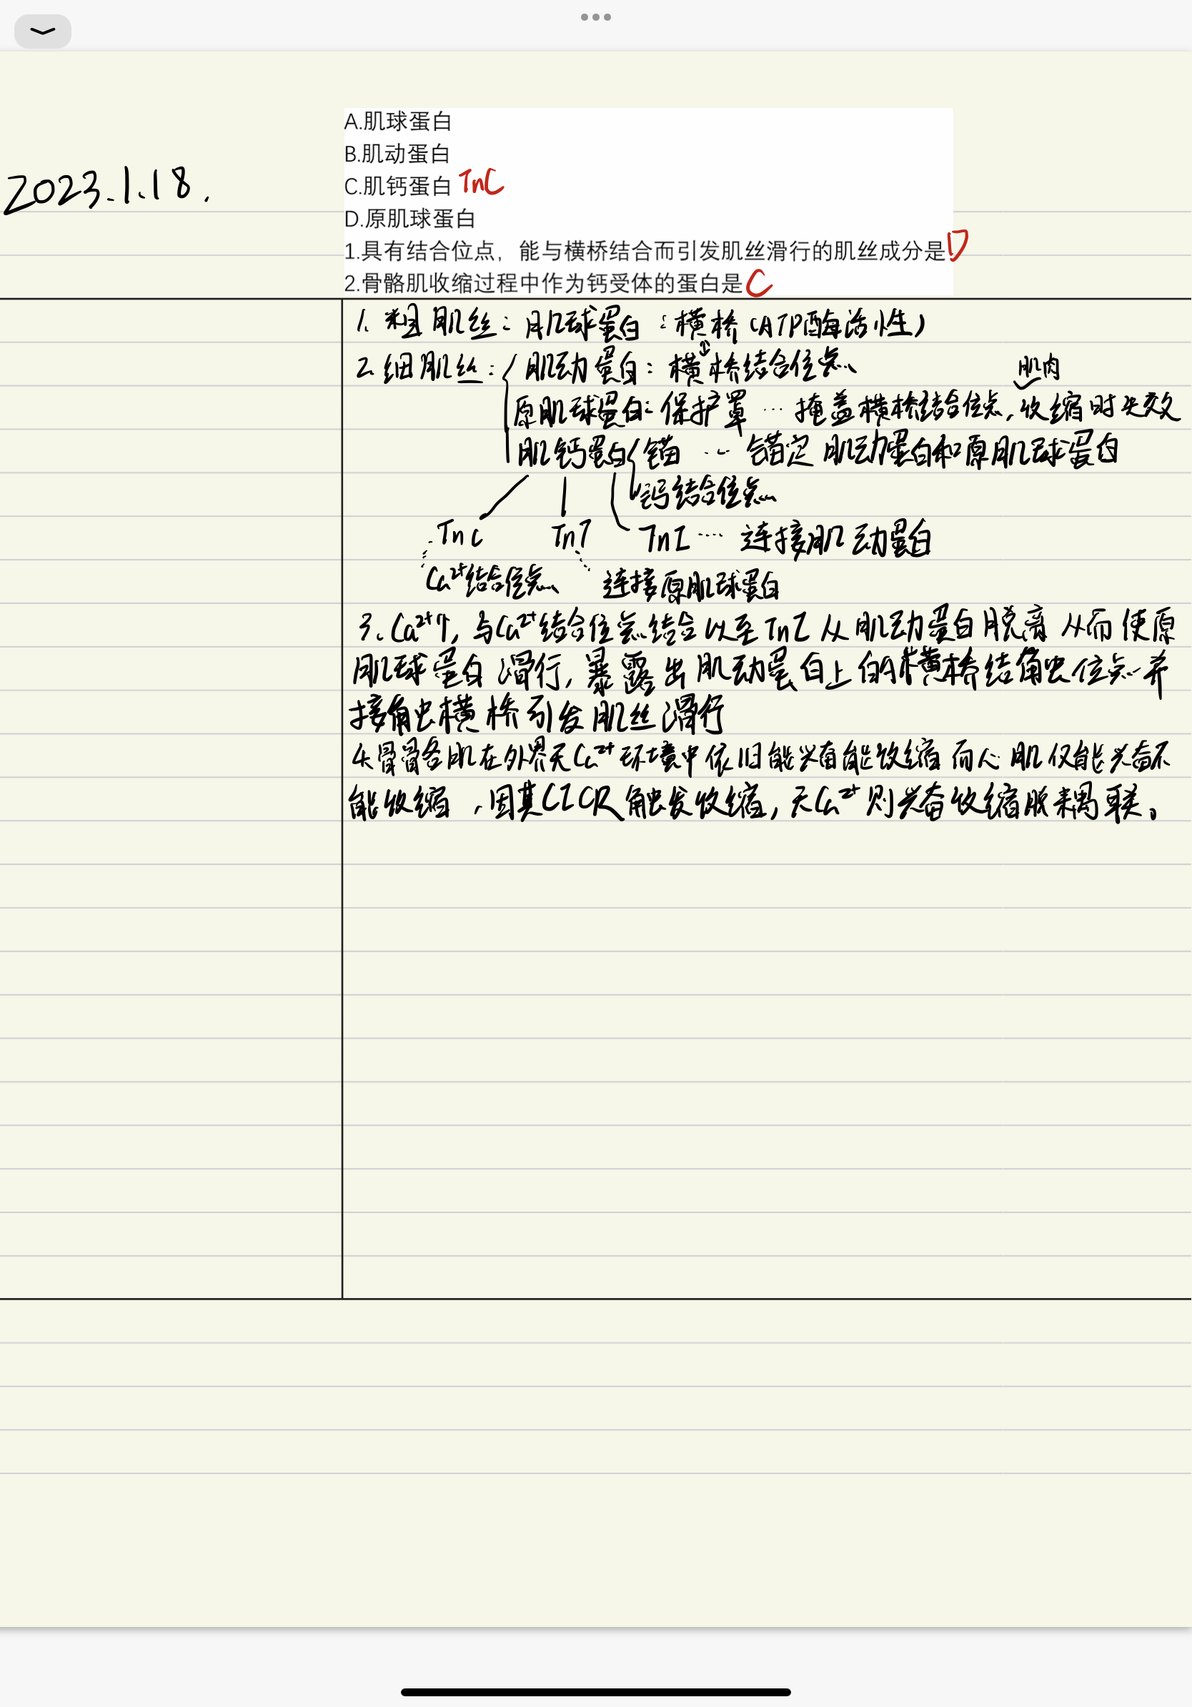 A.肌球蛋白
B.肌动蛋白
2023.1.18.
C.肌钙蛋白 TnC
D.原肌球蛋白
1.具有结合位点，能与横桥结合而引发肌丝滑行的肌丝成分是D
2.骨骼肌收缩过程中作为钙受体的蛋白是C
1. 粗肌丝：肌球蛋白：横桥（ATP酶活性）
2.细肌丝：肌动蛋白：横桥结合位点
肌肉
原肌球蛋白：保护罩…掩盖横桥结合位点，收缩时失效
肌钙蛋白 锚…锚定肌动蛋白和原肌球蛋白
钙结合位点
TnC TnT TnI…连接肌动蛋白
Ca²⁺结合位点 连接原肌球蛋白
3. Ca²⁺↑，与Ca²⁺结合位点结合以至TnI从肌动蛋白脱离从而使原
肌球蛋白滑行，暴露出肌动蛋白上的横桥结触位点并
接触横桥引发肌丝滑行
4.骨骼肌在外界无Ca²⁺环境中依旧能兴奋能收缩而心肌仅能兴奋不
能收缩，因其CICR触发收缩，无Ca²⁺则兴奋收缩脱耦联。